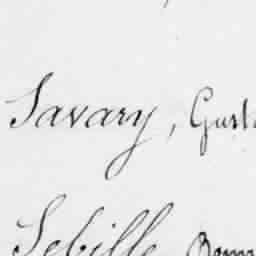 Savary, Gust
Sebille